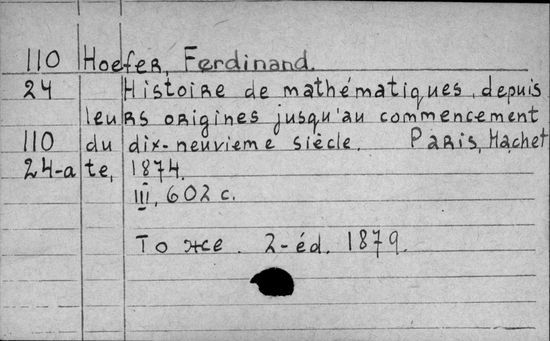 110 Hoefer, Ferdinand.
24 Histoire de mathématiques, depuis
leurs origines jusqu'au commencement
110 du dix-neuvieme siècle. Paris, Hachet
24-a te, 1874.
III, 602 c.
То же. 2-éd. 1879.